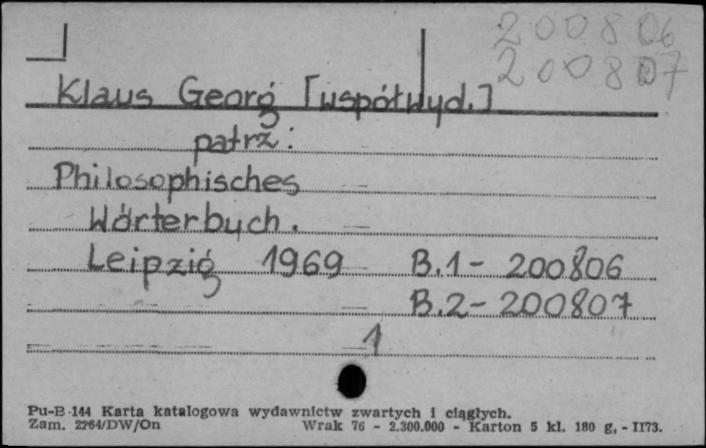 200806
200807
Klaus Georg [współwyd.]
patrz:
Philosophisches
Wörterbuch.
Leipzig 1969 B.1 - 200806
B.2 - 200807
1
Pu-B-144 Karta katalogowa wydawnictw zwartych i ciągłych.
Zam. 2764/DW/On Wrak 76 - 2.300.000 - Karton 5 kl. 180 g, - II73.